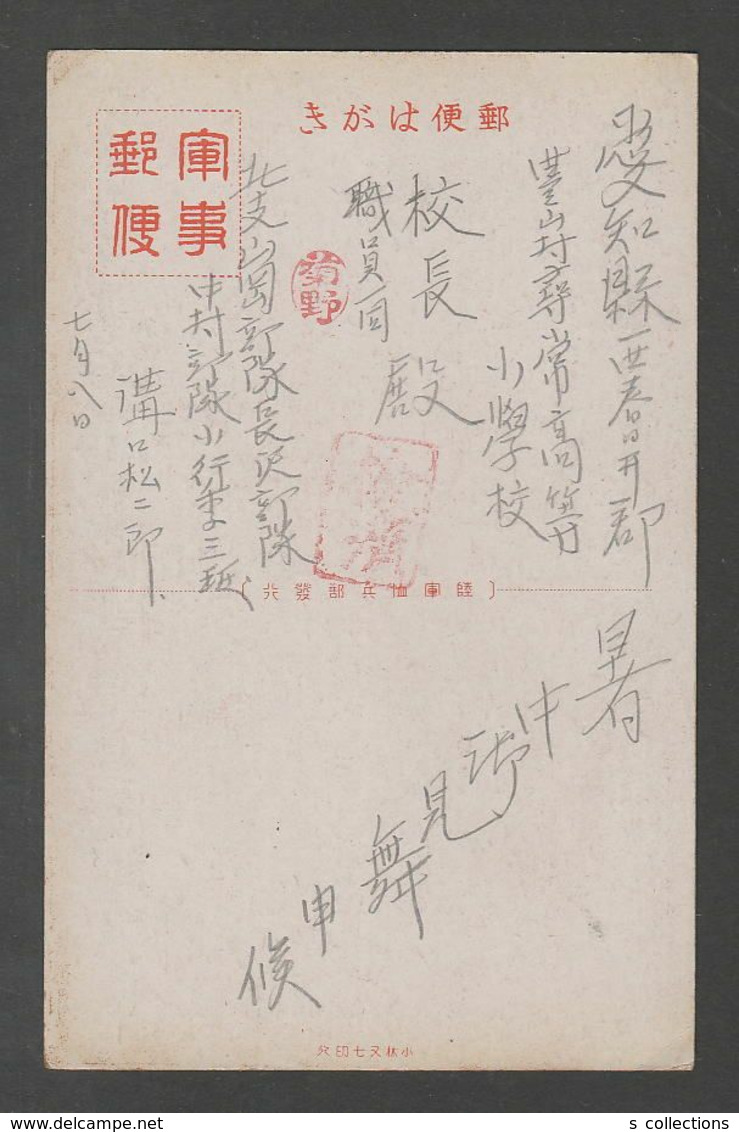 郵便はがき
軍事郵便
愛知縣西春日井郡
豊山村尋常高等
小學校
校長
職員一同
殿
菊野
檢濟
北支山岡部隊長沢部隊
中村部隊小行李三班
溝口松二郎
七月八日
〔陸軍恤兵部發行〕
暑中御見舞申候
s collections